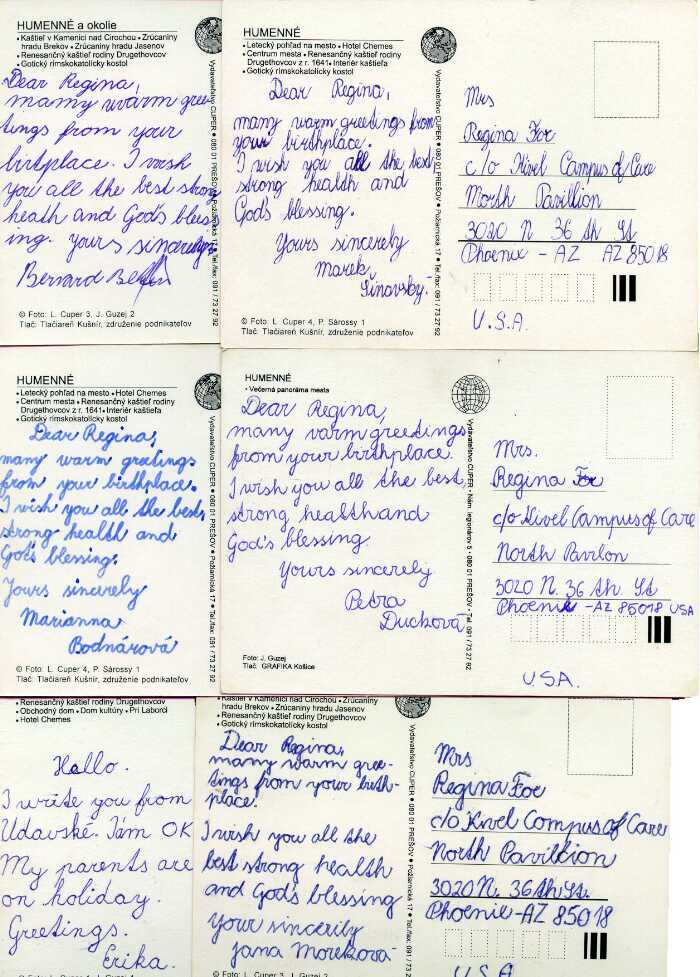 HUMENNÉ a okolie
• Kaštieľ v Kamenici nad Cirochou • Zrúcaniny
hradu Brekov • Zrúcaniny hradu Jasenov
• Renesančný kaštieľ rodiny Drugethovcov
• Gotický rímskokatolícky kostol
Dear Regina,
mamy warm gree-
tings from your
birtplace. I wish
you all the best strong
heath and God's bless
ing. yours sincerely
Bernard
© Foto: L. Cuper 3, J. Guzej 2
Tlač: Tlačiareň Kušnír, združenie podnikateľov
Vydavateľstvo CUPER • 080 01 PREŠOV • Požiarnická 17 • Tel./fax: 091 / 73 27 92
HUMENNÉ
• Letecký pohľad na mesto • Hotel Chemes
• Centrum mesta • Renesančný kaštieľ rodiny
Drugethovcov z r. 1641 • Interiér kaštieľa
• Gotický rímskokatolícky kostol
Dear Regina,
many warm greetings from
your birthplace.
I wish you all the best,
strong health and
God's blessing.
Yours sincerely
Marek
Šinavský
© Foto: L. Cuper 4, P. Sárossy 1
Tlač: Tlačiareň Kušnír, združenie podnikateľov
Vydavateľstvo CUPER • 080 01 PREŠOV • Požiarnická 17 • Tel./fax: 091 / 73 27 92
Mrs
Regina For
c/o Kivel Campus of Care
Morth Pavillion
3020 N 36 th St
Phoenix - AZ AZ 85018
U.S.A.
HUMENNÉ
• Letecký pohľad na mesto • Hotel Chemes
• Centrum mesta • Renesančný kaštieľ rodiny
Drugethovcov z r. 1641 • Interiér kaštieľa
• Gotický rímskokatolícky kostol
Dear Regina,
many warm greetings
from your birthplace.
I wish you all the best,
strong health and
God's blessing.
Yours sincerely
Marianna
Bodnárová
© Foto: L. Cuper 4, P. Sárossy 1
Tlač: Tlačiareň Kušnír, združenie podnikateľov
Vydavateľstvo CUPER • 080 01 PREŠOV • Požiarnická 17 • Tel./fax: 091 / 73 27 92
HUMENNÉ
• Večerná panoráma mesta
Dear Regina,
many varm greetings
from your birthplace.
I wish you all the best,
strong healthand
God's blessing.
Yours sincerely
Petra
Duchová
Foto: J. Guzej
Tlač: GRAFIKA Košice
Vydavateľstvo CUPER • Nám. legionárov 5 • 080 01 PREŠOV • Tel. 091 / 73 27 92
Mrs.
Regina For
c/o Kivel Campus of Care
North Pavilon
3020 N. 36 th St
Phoenix -AZ 85018 USA
USA.
Renesančný kaštieľ rodiny Drugethovcov
• Obchodný dom • Dom kultúry • Pri Laborci
• Hotel Chemes
Hello.
I write you from
Udavské. I'am OK
My parents are
on holiday.
Greetings.
Erika.
• Kaštieľ v Kamenici nad Cirochou • Zrúcaniny
hradu Brekov • Zrúcaniny hradu Jasenov
• Renesančný kaštieľ rodiny Drugethovcov
• Gotický rímskokatolícky kostol
Dear Regina,
many warm gree-
tings from your birth-
place.
I wish you all the
best strong health
and God's blessing
Your sincerily
Jana Moreková
© Foto: L. Cuper 3, J. Guzej 2
Vydavateľstvo CUPER • 080 01 PREŠOV • Požiarnická 17 • Tel./fax: 091 / 73 27 92
Mrs
Regina For
c/o Kivel Compus of Care
North Pavillion
3020 N. 36 th St.
Phoenie-AZ 85018
U S A